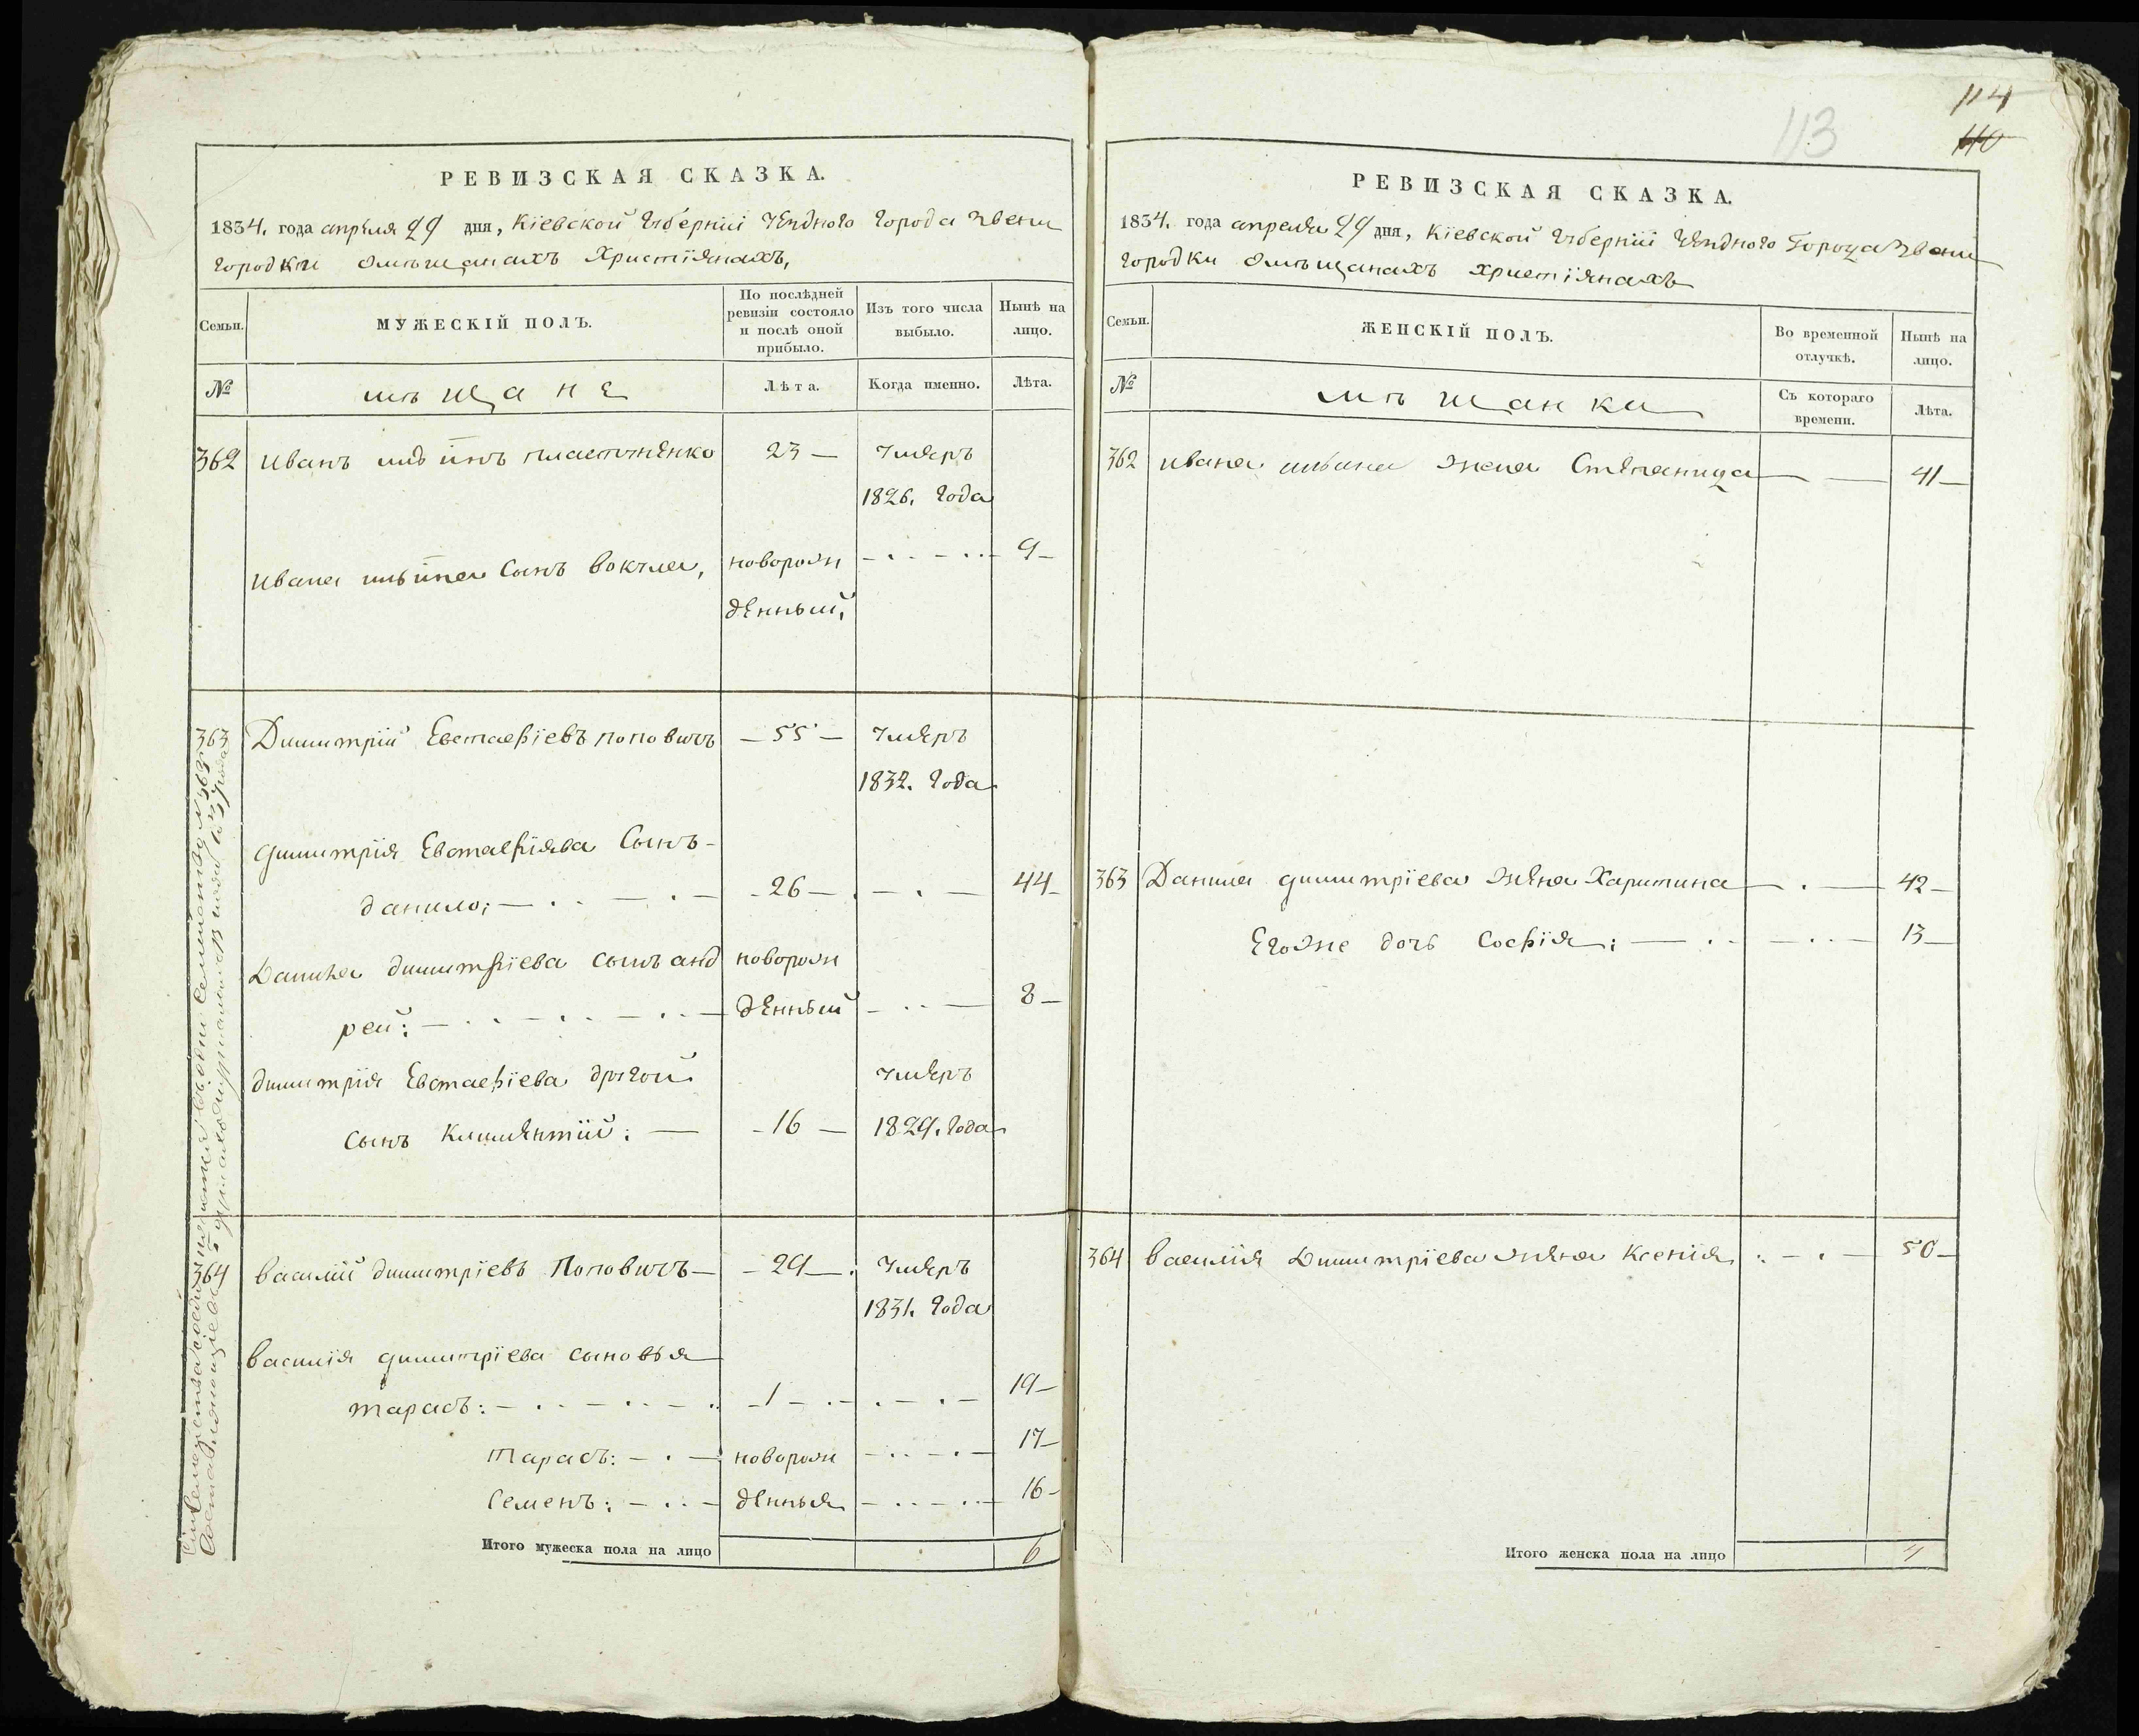 РЕВИЗСКАЯ СКАЗКА.
1834. года апреля 29 дня, Кіевской Губерніи Уезднаго Города Звени
городки Омѣщанахъ Христіянахъ,
Семьи.
МУЖЕСКІЙ ПОЛЪ.
По послѣдней
ревизіи состояло
и послѣ оной
прибыло.
Изъ того числа
выбыло.
Нынѣ на
лицо.
№
мѣщане
Лѣта.
Когда именно.
Лѣта.
362 Иванъ Пластуненко 23 — Умеръ
1826. Года
Ивана Сынъ Вокула, новорож 9 —
денный,
363 Димитрій Евстафіевъ Поповичъ — 55 — Умеръ
1832. Года
Димитрія Евстафіева Сынъ
Данило; 26 — 44
Данила Димитріева сынъ Анд новорож
рей: денный 8 —
Димитрія Евстафіева другой Умеръ
Сынъ Климентій: — 16 — 1829. Года
364 Василій Димитріевъ Поповичъ — 29 — Умеръ
1831. Года
Василія Димитріева сыновья
Тарасъ: 1 19
Тарасъ: новорож 17
Семенъ: денныя 16
Итого мужеска пола на лицо 6
114
110
113
РЕВИЗСКАЯ СКАЗКА.
1834. года апреля 29 дня, Кіевской Губерніи Уезднаго Города Звени
городки Омѣщанахъ Христіянахъ
Семьи.
ЖЕНСКІЙ ПОЛЪ.
Во временной
отлучкѣ.
Нынѣ на
лицо.
№
мѣщанки
Съ котораго
времени.
Лѣта.
362 Ивана жена Степанида 41 —
363 Данила Димитріева жена Харитина 42 —
Егоже дочь Софія: 13 —
364 Василія Димитріева жена Ксенія 50 —
Итого женска пола на лицо 4